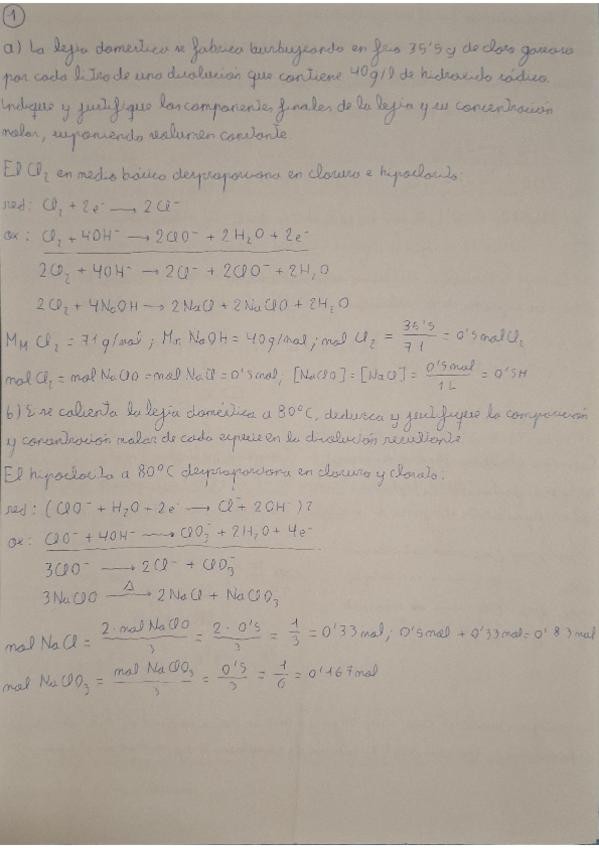 1
a) La lejía doméstica se fabrica burbujeando en frío 35'5 g de cloro gaseoso
por cada litro de una disolución que contiene 40 g/l de hidróxido sódico.
Indique y justifique los componentes finales de la lejía y su concentración
molar, suponiendo volumen constante.
El Cl₂ en medio básico desproporciona en cloruro e hipoclorito:
red: Cl₂ + 2e⁻ → 2Cl⁻
ox: Cl₂ + 4OH⁻ → 2ClO⁻ + 2H₂O + 2e⁻
2Cl₂ + 4OH⁻ → 2Cl⁻ + 2ClO⁻ + 2H₂O
2Cl₂ + 4NaOH → 2NaCl + 2NaClO + 2H₂O
Mm Cl₂ = 71 g/mol ; Mm NaOH = 40 g/mol ; mol Cl₂ = 35'5/71 = 0'5 mol Cl₂
mol Cl₂ = mol NaClO = mol NaCl = 0'5 mol; [NaClO] = [NaCl] = 0'5 mol/1 L = 0'5 M
b) Si se calienta la lejía doméstica a 80°C, deduzca y justifique la composición
y concentración molar de cada especie en la disolución resultante.
El hipoclorito a 80°C desproporciona en cloruro y clorato:
red: (ClO⁻ + H₂O + 2e⁻ → Cl⁻ + 2OH⁻)2
ox: ClO⁻ + 4OH⁻ → ClO₃⁻ + 2H₂O + 4e⁻
3ClO⁻ → 2Cl⁻ + ClO₃⁻
3NaClO –Δ→ 2NaCl + NaClO₃
mol NaCl = 2·mol NaClO/3 = 2·0'5/3 = 1/3 = 0'33 mol; 0'5 mol + 0'33 mol = 0'83 mol
mol NaClO₃ = mol NaClO₃/3 = 0'5/3 = 1/6 = 0'167 mol